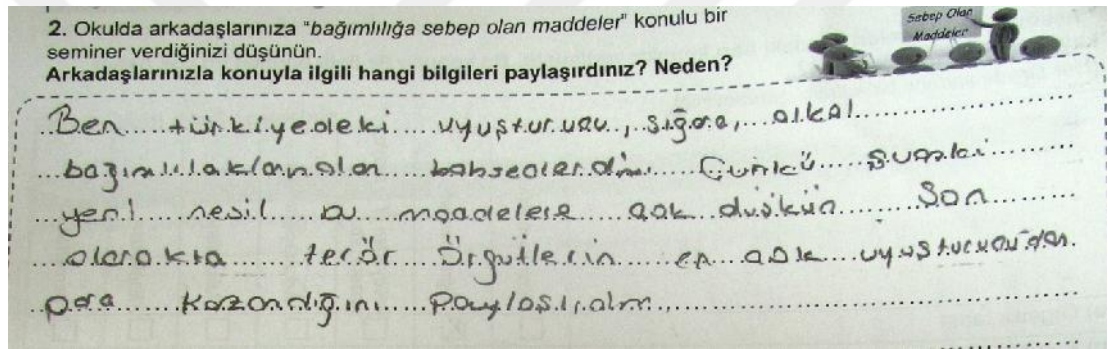 2. Okulda arkadaşlarınıza "bağımlılığa sebep olan maddeler" konulu bir
seminer verdiğinizi düşünün.
Arkadaşlarınızla konuyla ilgili hangi bilgileri paylaşırdınız? Neden?
Sebep Olan
Maddeler
Ben türkiyedeki uyuşturucu, sigara, alkol
bağımlılaklarından bahsederdim Çünkü şuanki
yeni nesil bu maddelere çok düşkün Son
olarakta terör Örgütlerin en çok uyuşturucu'dan
para kazandığını Paylaşırdım